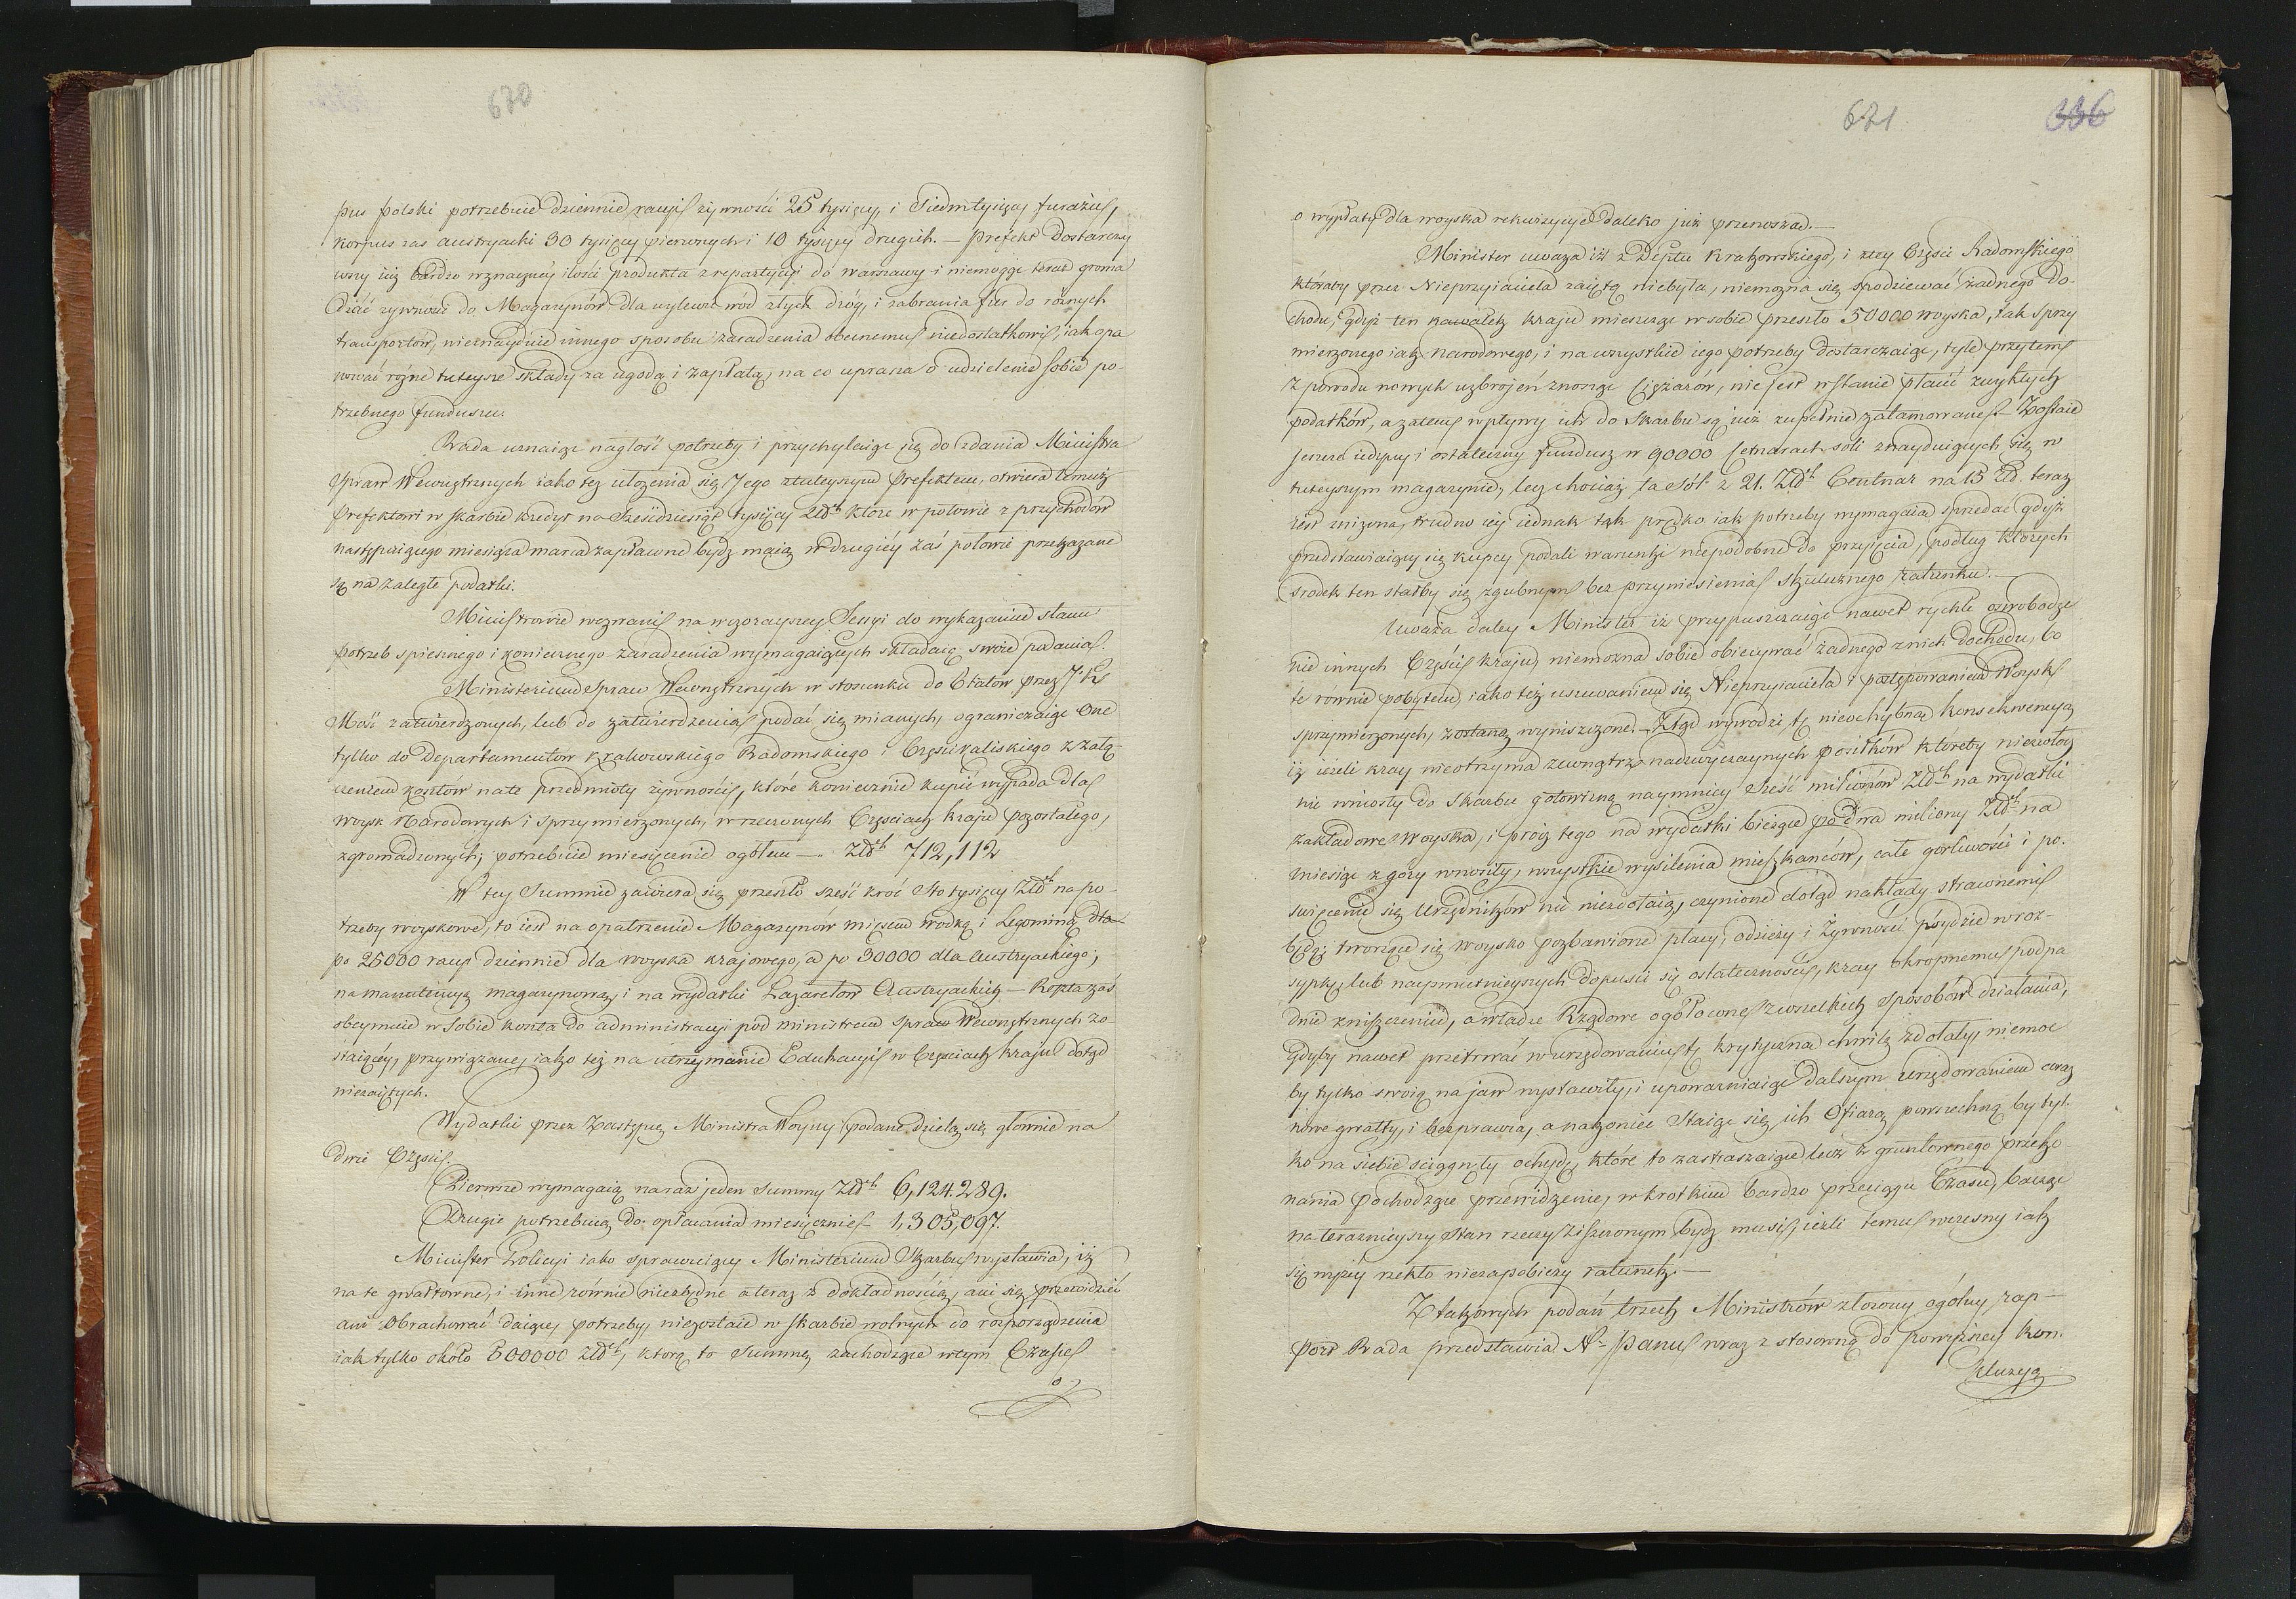 670
pus polski potrzebuie dziennie racyi żywności 25 tysięcy, i Siedmtysięcy furażu,
korpus zas austryacki 30 tysięcy pierwszych i 10 tysięcy drugich. — Prefekt dostarczy
wszy iuż bardzo wznaczney ilości produkta z repartycyi do warszawy i niemogąc teraz groma
dzić żywności do Magazynów dla wylewu wód złych dróg, i zabrania fur do różnych
transportów, nieznayduie innego sposobu zaradzenia obecnemu niedostatkowi, iak opa
nować różne tuteysze składy za ugodą i zapłatą, na co uprasza o udzielenie sobie po-
trzebnego funduszu.
Rada uznaiąc nagłość potrzeby i przychylaiąc się do zdania Ministra
Spraw Wewnętrznych iako też ułożenia się Jego ztuteyszym Prefektem, otwiera temuż
Prefektowi w skarbie kredyt na Sześćdziesiąt tysięcy Złłch które w połowie z przychodów
następuiącego miesiąca marca zapłacone bydz maią w drugiéy zaś połowie przekazane
są na zaległe podatki.
Ministrowie wezwani na wczorayszey Sessyi do wykazania stanu
potrzeb spiesznego i koniecznego zaradzenia wymagaiących składaią swoie podania.
Ministerium Spraw Wewnętrznych w stosunku do Etatów przez JK
Mość zatwierdzonych, lub do zatwierdzenia podać się mianych, ograniczaiąc one
tylko do Departamentów Krakowskiego Radomskiego i Części kaliskiego z załą-
czeniem kosztów na te przedmioty żywności, które koniecznie kupić wypada dla
woysk Narodowych i sprzymierzonych, w rzeczonych Częściach kraju pozostałego,
zgromadzonych, potrzebuie miesięcznie ogółem — Złłch 712,112
W tey Summie zawiera się przeszło sześć kroć Sto tysięcy Złłch na po-
trzeby woyskowe, to iest na opatrzenie Magazynów mięsem wodką i Legominą dla
po 25000 racyi dziennie dla woyska krajowego, a po 30000 dla Austryackiego;
na manutencyą magazynową, i na wydatki Lazaretów Austryackich — Reszta zaś
obeymuie w sobie koszta do administracyi pod ministrem Spraw Wewnętrznych zo-
staiącéy, przywiązane, iako też na utrzymanie Edukacyi w Częściach kraju dotąd
niezaiętych.
Wydatki przez Zastępcę Ministra Woyny podane dzielą się głownie na
dwie Części.
Pierwsze wymagaią na raz jeden Summy Złłch 6,124,289.
Drugie potrzebuią do opłacania miesięcznie — 1,305,097.
Minister Policyi iako sprawuiący Ministerium Skarbu wystawia, iż
na te gwałtowne, i inne równie niezbędne a teraz z dokładnością, ani się przewidzieć
ani obrachować daiące, potrzeby, niezostaie w skarbie wolnych do rozporządzenia
iak tylko około 500000 Złłch, którą to Summę zachodzące wtym Czasie
o
671
336
o wypłaty dla woyska rekwizycye daleko już przenoszą. —
Minister uważa iż z Deptu Krakowskiego, i z tey Części Radomskiego
któraby przez Nieprzyiaciela zaiętą niebyła, niemożna się spodziewać żadnego do-
chodu, gdyż ten kawałek kraju mieszcząc w sobie przeszło 50000 woyska, tak sprzy
mierzonego iak Narodowego, i na wszystkie iego potrzeby dostarczaiąc, tyle przytem
z powodu nowych uzbrojeń znosząc Ciężarów, nie jest w stanie płacić zwykłych
podatków, a zatem wpływy ich do Skarbu są iuż zupełnie zatamowane. — Zostaie
jeszcze iedyny i ostateczny fundusz w 90000 Cetnarach soli znayduiących się w
tuteyszym magazynie, lecz chociaż ta Sól z 21. Złłch Centnar na 15 Zł. teraz
iest zniżona, trudno iey iednak tak prędko iak potrzeby wymagaią sprzedać gdyż
przedstawiaiący się kupcy podali warunki niepodobne do przyięcia, podług których
srodek ten stałby się zgubnym bez przyniesienia skutecznego ratunku. —
Uważa daley Minister iż przypuszczaiąc nawet rychłe oswobodze
nie innych Części kraju, niemożna sobie obiecywać żadnego znich dochodu, bo
te równie pobytem, iako też usuwaniem się Nieprzyiaciela i postępowaniem Woysk
sprzymierzonych, zostaną wyniszczone. — Ztąd wywodzi tę nieochybną konsekwencyą
iż ieżeli kray nieotrzyma zewnątrz nadzwyczaynych posiłków któreby niezwłocz
nie wniosły do Skarbu gotowizną naymniey Sześć milionów Złłch na wydatki
zakładowe Woyska, i prócz tego na wydatki bieżące po dwa miliony Złłch na
miesiąc z góry wnosiły, wszystkie wysilenia mieszkańców, całe gorliwość i po-
święcenie się Urzędników nic niezdołaią, czynione dotąd nakłady straconemi
będą, tworzące się woysko pozbawione płacy, odzieży i Żywności póydzie w roz-
sypkę, lub naysmutnieyszych dopuści się ostateczności, kray okropnemu podpa
dnie zniszczeniu, a władze Rządowe ogołocone z wszelkich Sposobów działania,
gdyby nawet przetrwać w urzędowaniu tę krytyczną chwilę zdołały, niemoc
by tylko swoią na jaw wystawiły, i upoważniaiąc dalszym urzędowaniem coraz
nowe gwałty, i bezprawia, a nakoniec Staiąc się ich Ofiarą powszechną by tyl-
ko na siebie sciągnęły ochydę, które to zastraszaiące lecz z gruntownego przeko-
nania pochodzące przewidzenie, w krotkim bardzo przeciągu Czasu, bacząc
na teraznieyszy Stan rzeczy ziszczonym bydz musi, ieżli temu wczesny iak
się wyżéy rzekło niezapobieży ratunek. —
Z takowych podań trzech Ministrów złożony ogólny rap-
port Rada przedstawia N. Panu wraz z stosowną do powyższey kon-
kluzyą